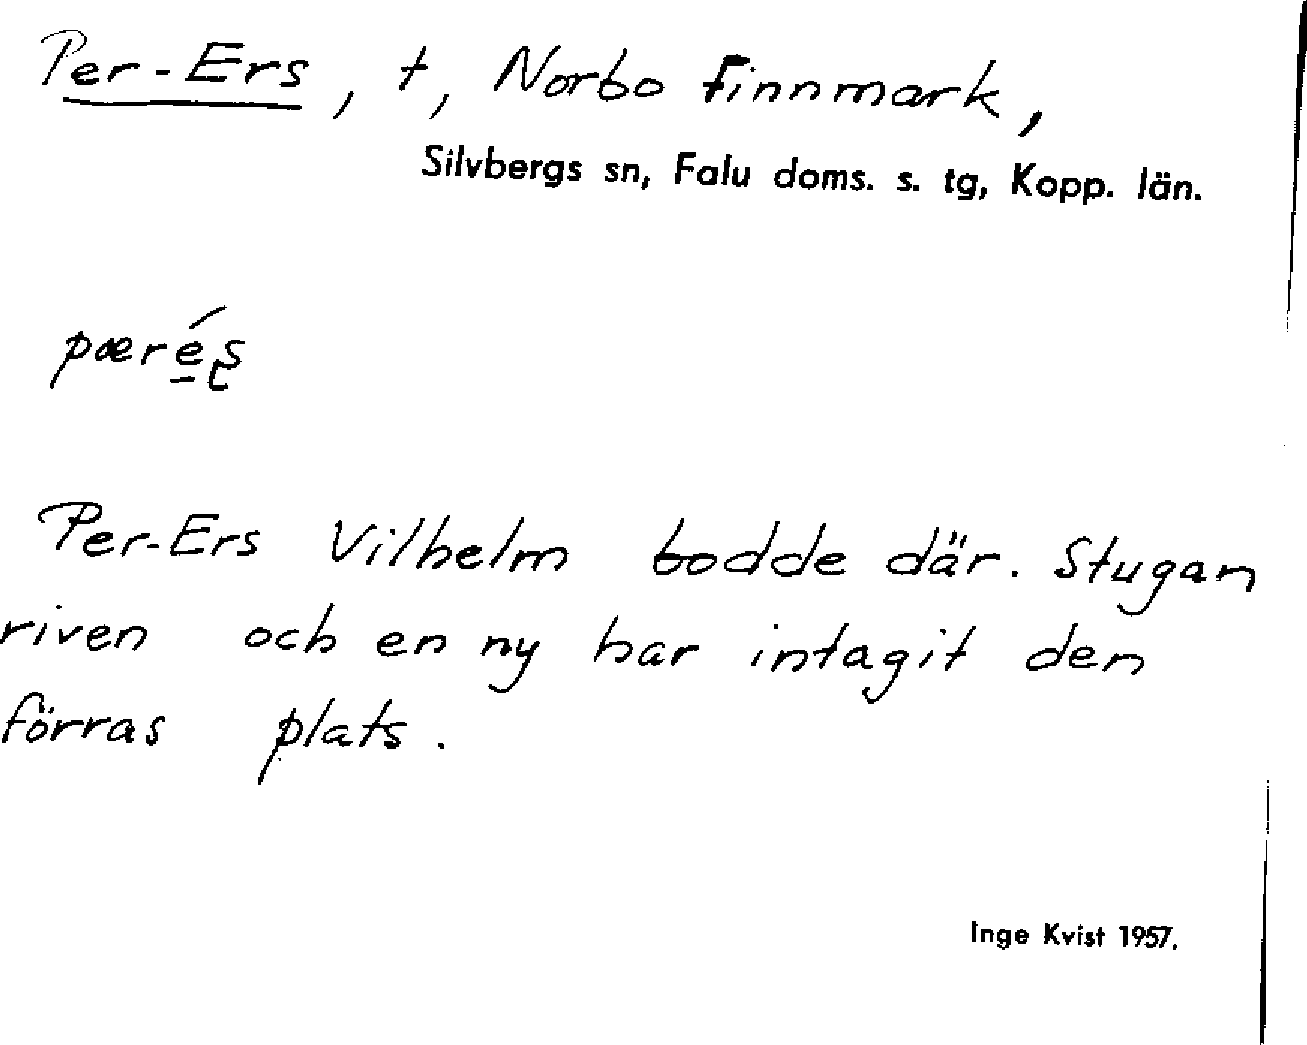 Per-Ers, t, Norbo Finnmark,
Silvbergs sn, Falu doms. s. tg, Kopp. län.
pæré̱ʂ
Per-Ers Vilhelm bodde där. Stugan
riven och en ny har intagit den
förras plats.
Inge Kvist 1957.